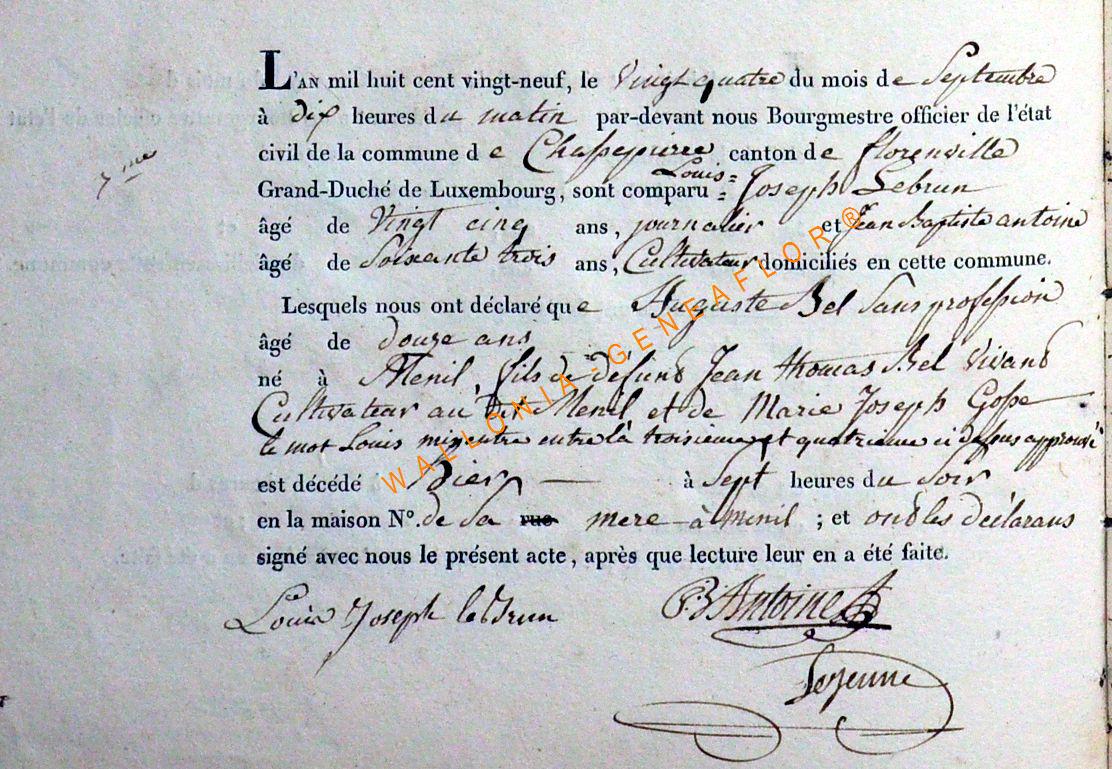 L'AN mil huit cent vingt-neuf, le Vingt quatre du mois de Septembre
à dix heures du matin par-devant nous Bourgmestre officier de l'état
civil de la commune de Chassepierre canton de florenville
7ieme
Louis =
Grand-Duché de Luxembourg, sont comparu = Joseph Lebrun
âgé de Vingt cinq ans, journalier et Jean Baptiste antoine
âgé de Soixante trois ans, Cultivateur domiciliés en cette commune.
Lesquels nous ont déclaré que Auguste Bel Sans profession
âgé de douze ans
né à Menil, fils de défunt Jean thomas Bel Vivant
Cultivateur au dit Menil et de Marie Joseph Gosse
le mot Louis entre la troisieme et quatrieme ci dessus approuvé
est décédé hier à Sept heures du Soir
en la maison N°. de Sa rue mere à menil ; et ont les déclarans
signé avec nous le présent acte, après que lecture leur en a été faite.
Louis Joseph leBrun
Antoine
Lejeune
WALLONIA-GENEAFLOR®